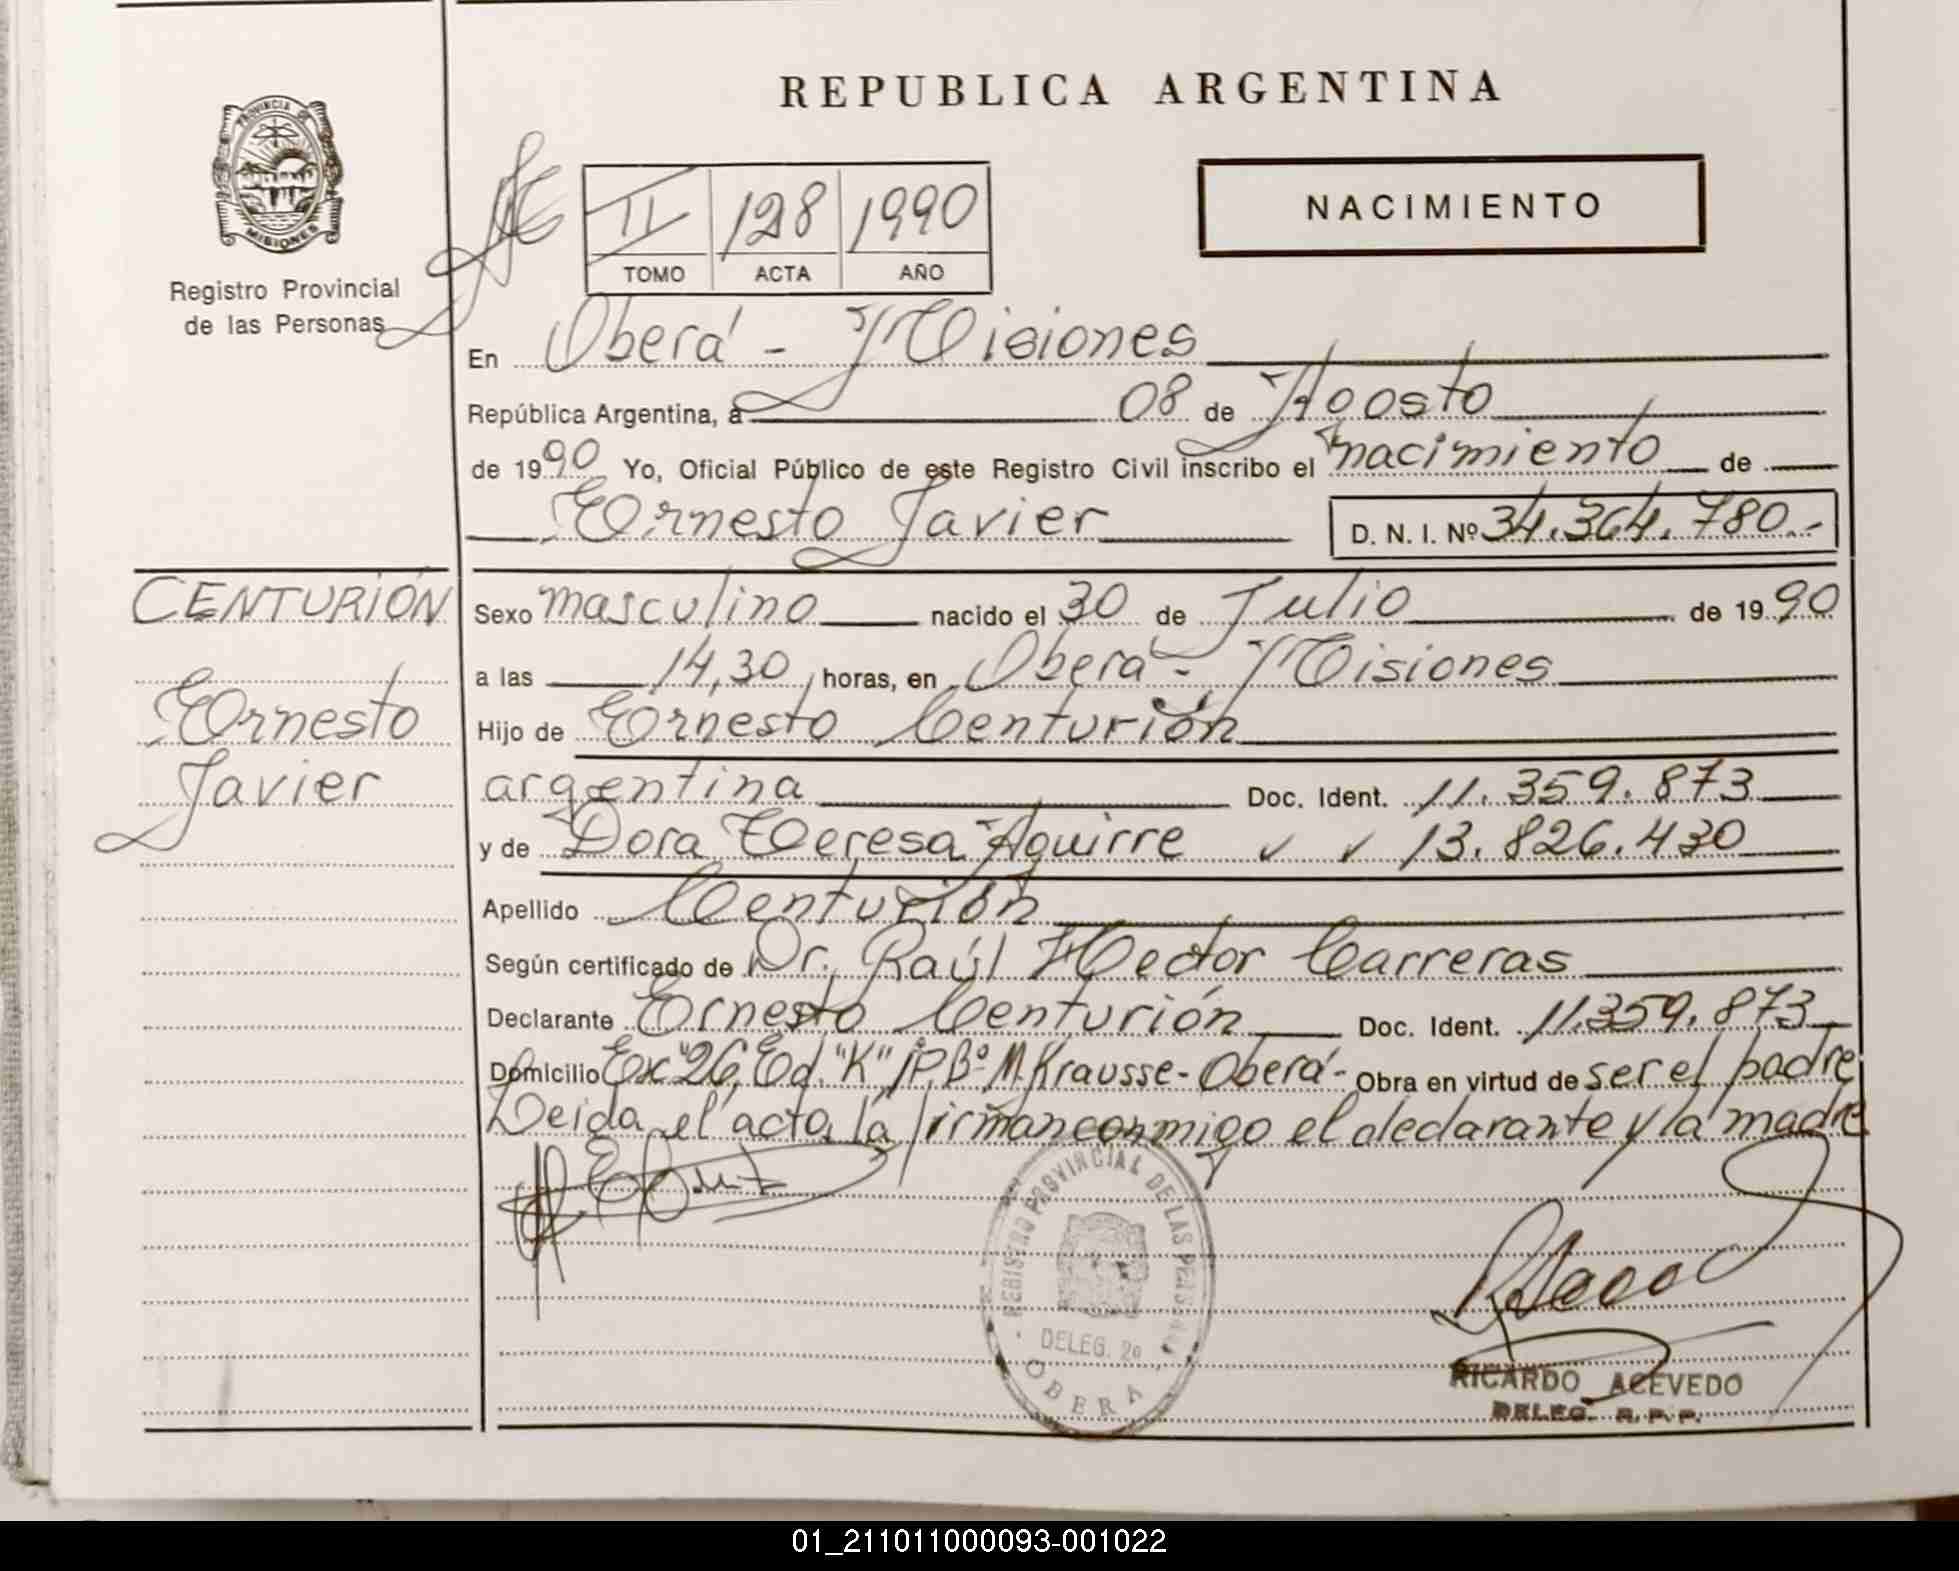 REPUBLICA ARGENTINA
PROVINCIA DE
MISIONES
Registro Provincial
de las Personas
II 128 1990
TOMO ACTA AÑO
NACIMIENTO
En Oberá - Misiones
República Argentina, a 08 de Agosto
de 1990 Yo, Oficial Público de este Registro Civil inscribo el nacimiento de
Ernesto Javier D. N. I. Nº 34.364.780.-
CENTURIÓN
Ernesto
Javier
Sexo masculino nacido el 30 de Julio de 1990
a las 14,30 horas, en Oberá - Misiones
Hijo de Ernesto Centurión
argentina Doc. Ident. 11.359.873
y de Dora Teresa Aguirre 13.826.430
Apellido Centurión
Según certificado de Dr. Raúl Hector Carreras
Declarante Ernesto Centurión Doc. Ident. 11.359.873
Domicilio Ex "26, Ed. "K", Bº M. Krausse - Oberá - Obra en virtud de ser el padre
Leida el acta, la firman conmigo el declarante y la madre
REGISTRO PROVINCIAL DE LAS PERSONAS
DELEG. 2º
OBERA
RICARDO ACEVEDO
DELEG. R. P. P.
01_211011000093-001022